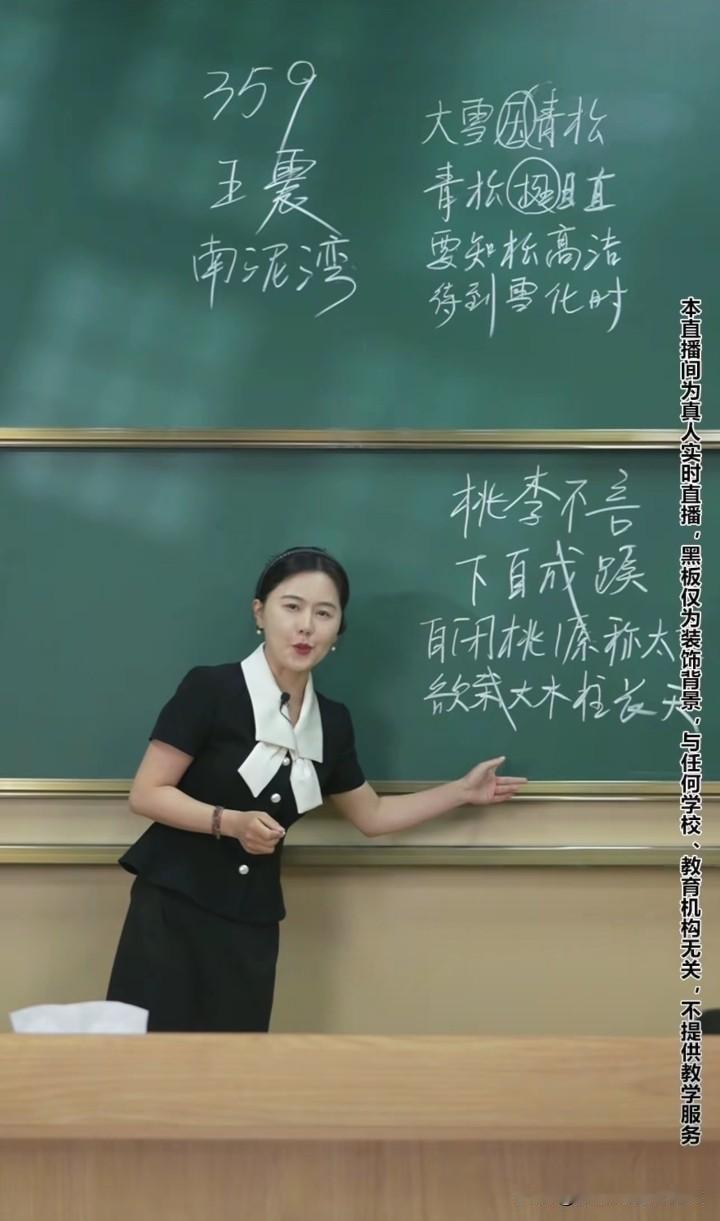 359
王震
南泥湾
大雪青松
青松挺且直
要知松高洁
待到雪化时
桃李不言
下自成蹊
自闭桃源称太
欲栽大木柱长天
本直播间为真人实时直播，黑板仅为装饰背景，与任何学校、教育机构无关，不提供教学服务